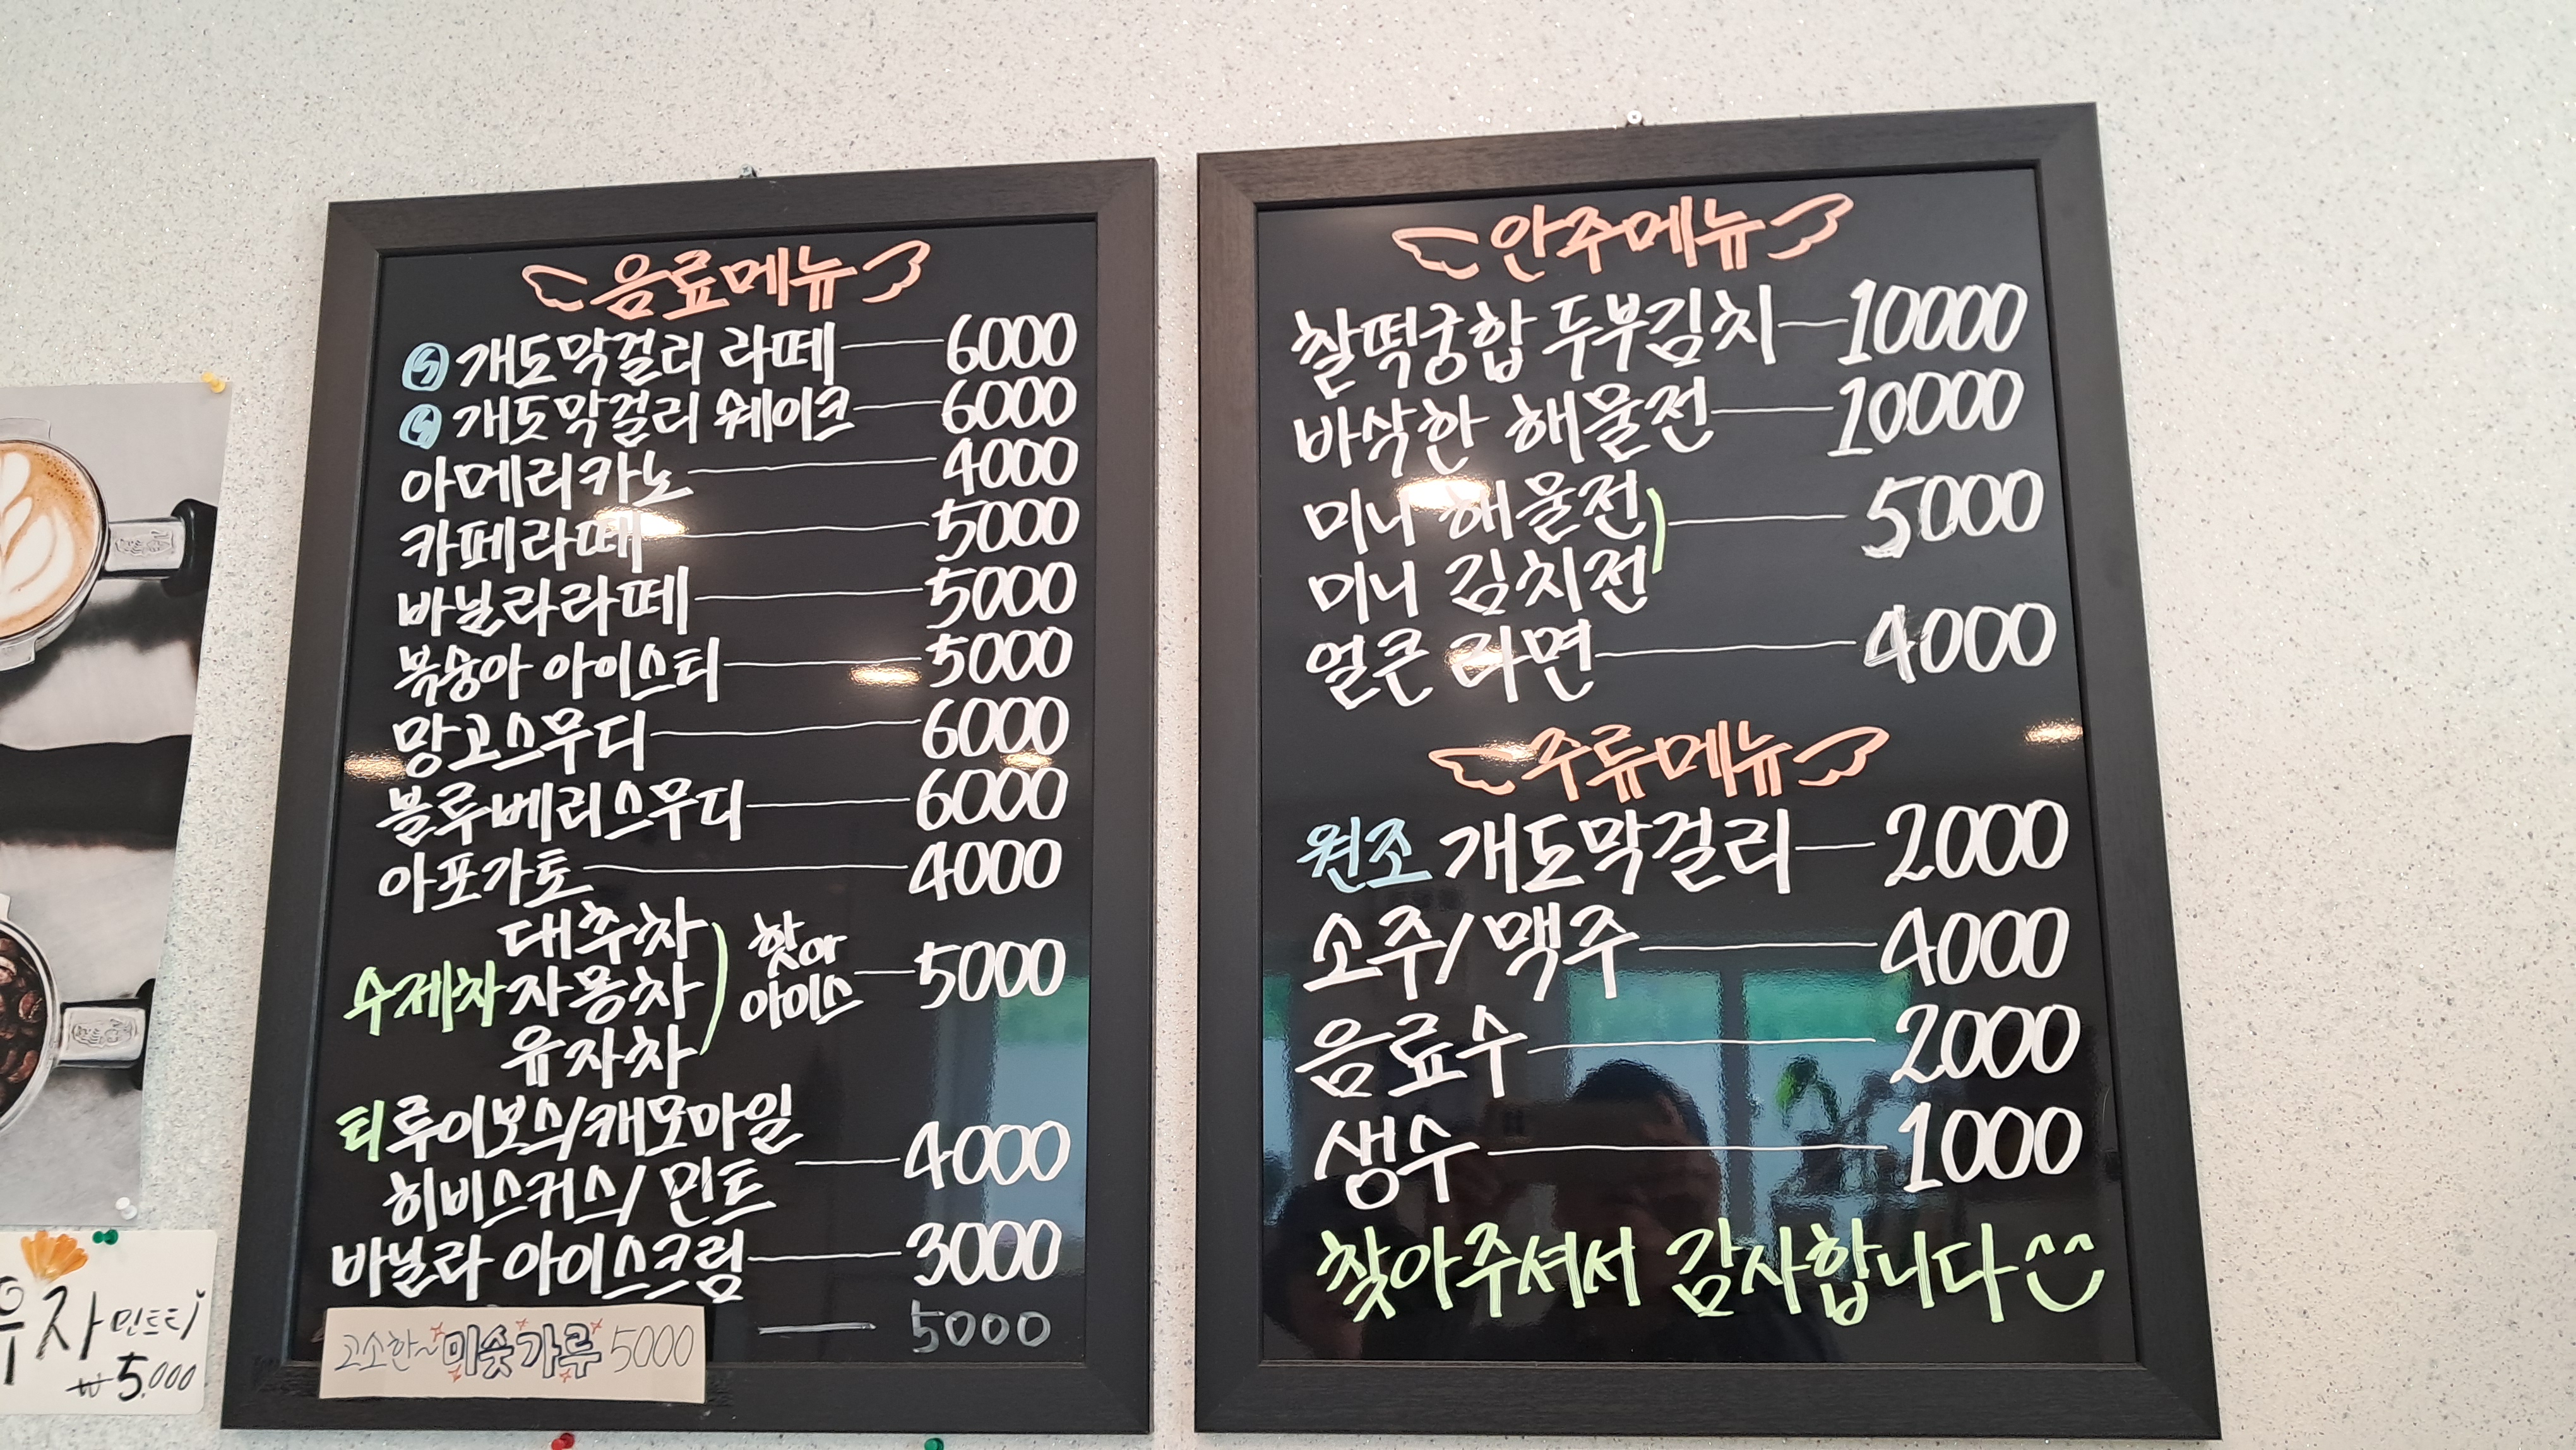 음료메뉴
개도막걸리 라떼 6000
개도막걸리 쉐이크 6000
아메리카노 4000
카페라떼 5000
바닐라라떼 5000
복숭아 아이스티 5000
망고스무디 6000
블루베리스무디 6000
아포가토 4000
수제차 대추차 자몽차 유자차 핫 or 아이스 5000
티 루이보스/캐모마일
히비스커스/ 민트 4000
바닐라 아이스크림 3000
고소한~ 미숫가루 5000
5000
안주메뉴
찰떡궁합 두부김치 10000
바삭한 해물전 10000
미니 해물전
미니 김치전 5000
얼큰 라면 4000
주류메뉴
원조 개도막걸리 2000
소주/ 맥주 4000
음료수 2000
생수 1000
찾아주셔서 감사합니다
자 민트티
₩5,000